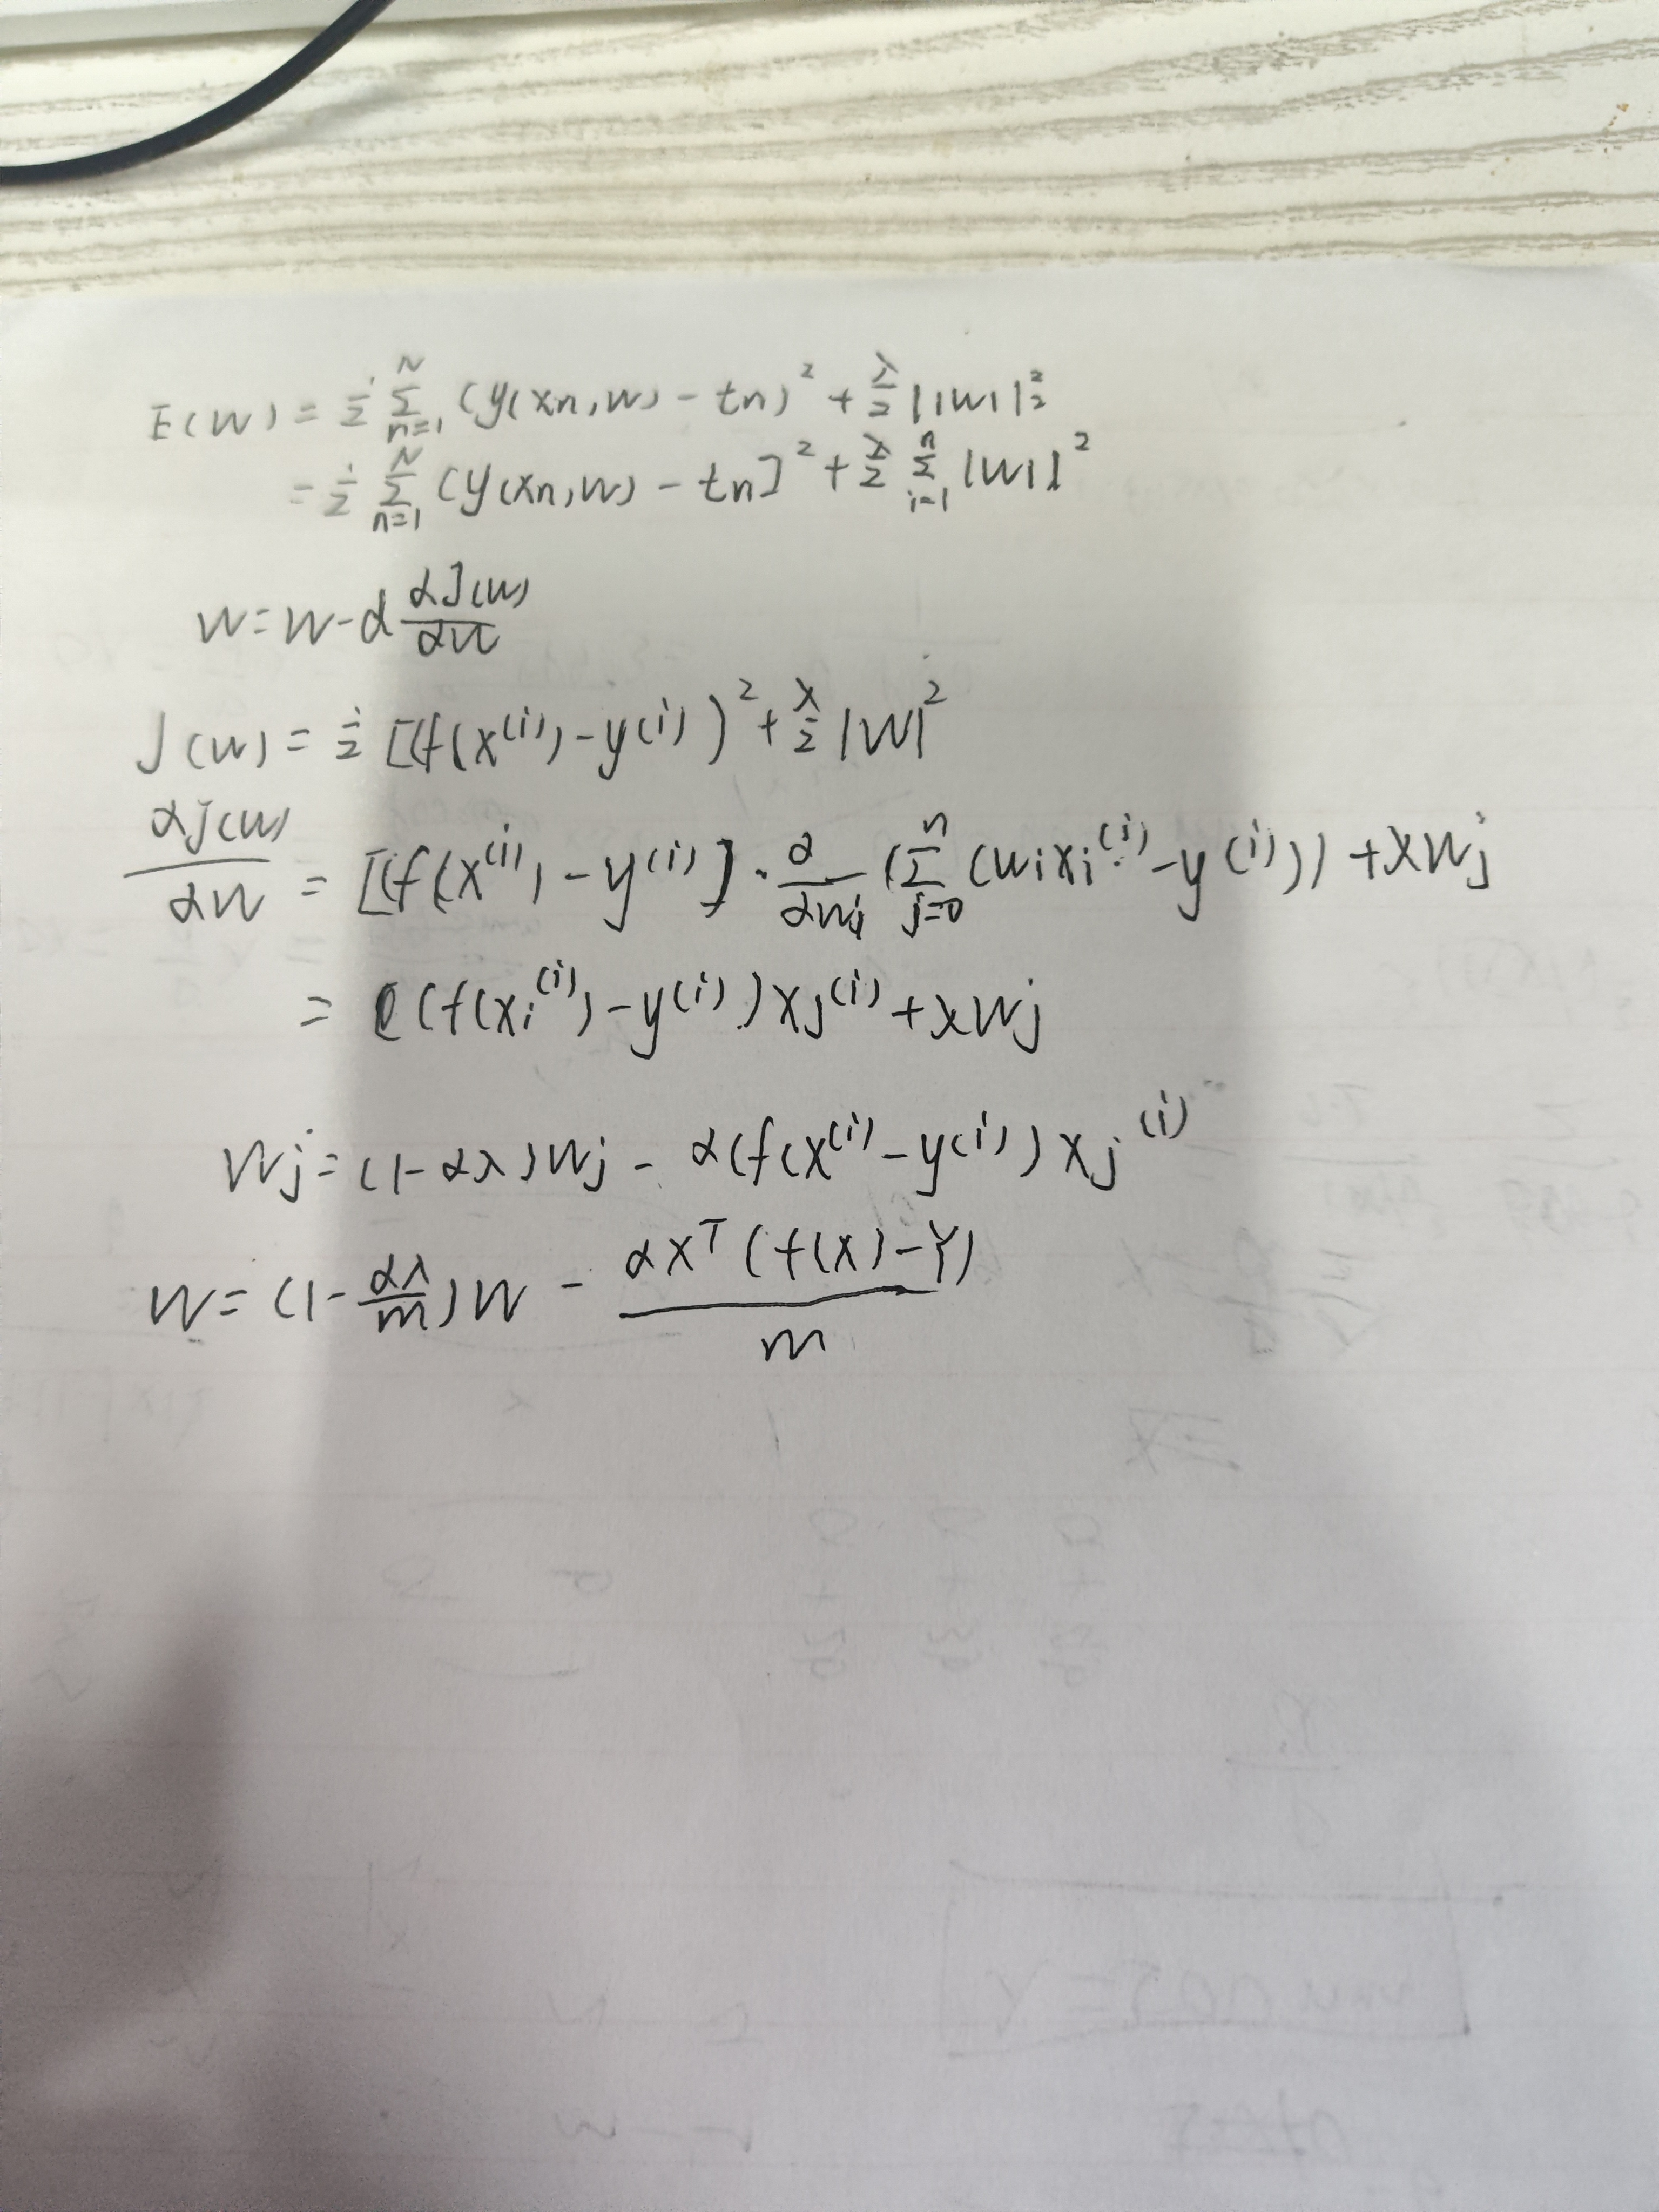 E(W) = ½ Σ_{n=1}^{N} (y(xn,w) - tn)² + λ/2 ||W||₂²
= ½ Σ_{n=1}^{N} (y(xn,w) - tn]² + λ/2 Σ_{i=1}^{n} |Wi|²
w = w - α ∂J(w)/∂w
J(w) = ½ [(f(x^(i)) - y^(i))² + λ/2 |W|²
∂J(w)/∂w = [(f(x^(i)) - y^(i)] · ∂/∂wj (Σ_{j=0}^{n} (wixi^(i) - y^(i))) + λWj
= (f(xi^(i)) - y^(i))xj^(i) + λWj
Wj = (1-αλ)Wj - α(f(x^(i) - y^(i))xj^(i)
W = (1 - αλ/m)W - αX^T(f(X)-Y)/m